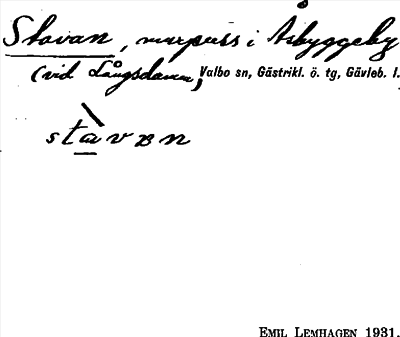 Stavan, murpuss i Åsbyggeby
(vid Långsdamm, Valbo sn, Gästrikl. ö. tg, Gävleb. l.
stavɐn
EMIL LEMHAGEN 1931.